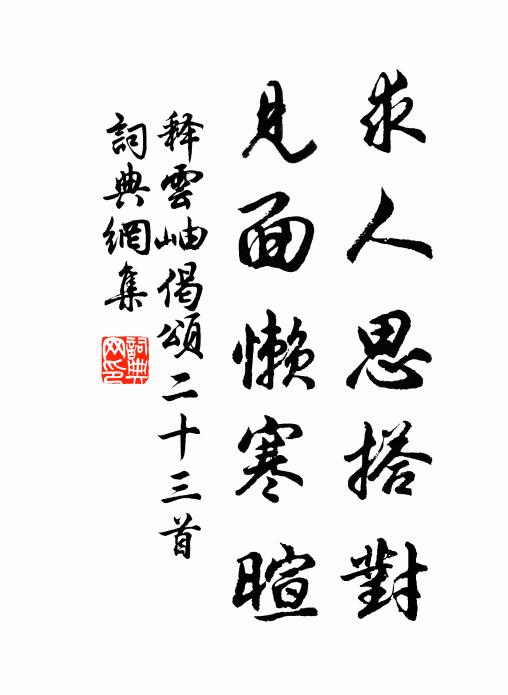 求人思搭對
見面懶寒暄
釋雲岫偈頌二十三首
詞典網集
詞典網印